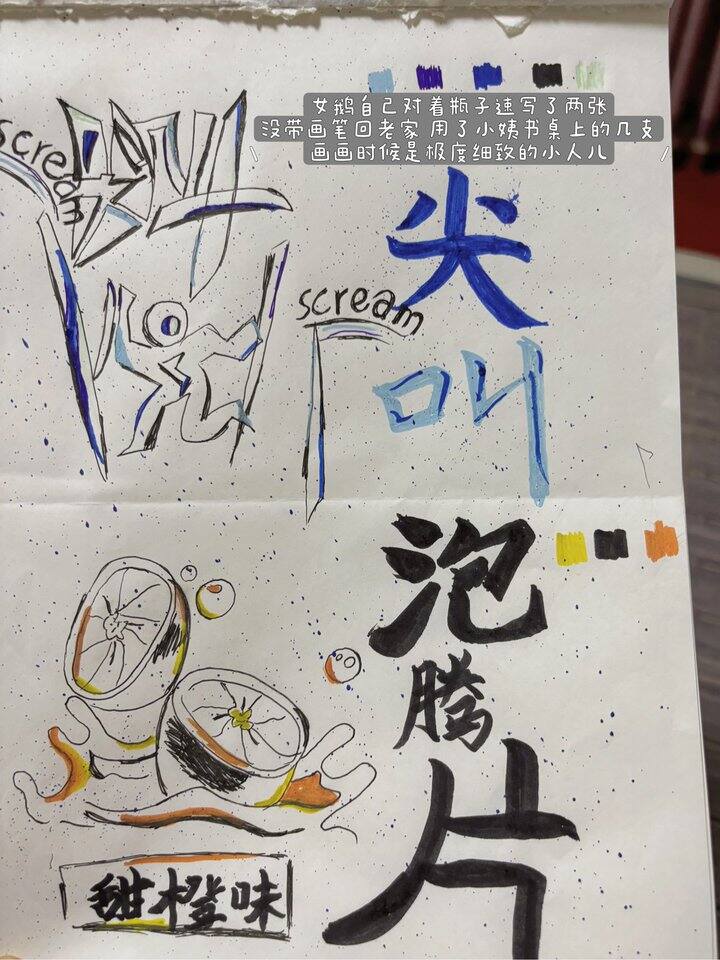 女鹅自己对着瓶子速写了两张
没带画笔回老家 用了小姨书桌上的几支
画画时候是极度细致的小人儿
scream
scream
尖叫
泡腾片
甜橙味